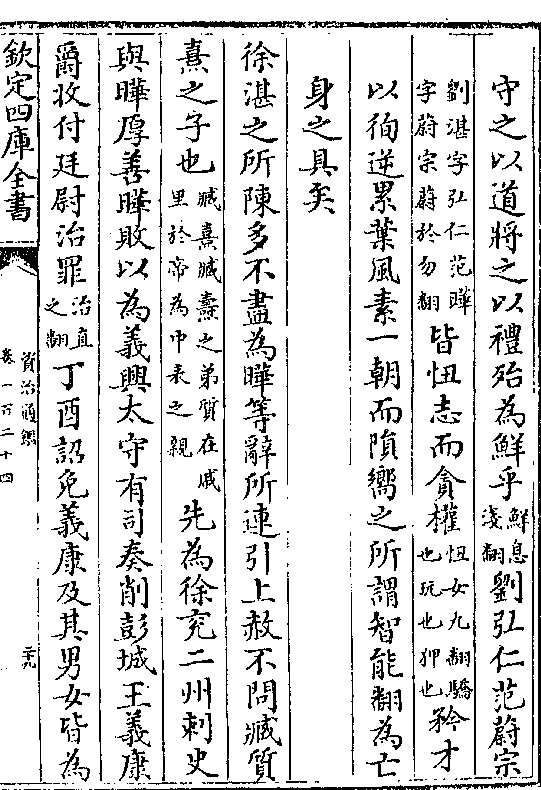 守之以道將之以禮殆為鮮乎鮮息淺翻劉弘仁范蔚宗
劉湛字弘仁范曄字蔚宗蔚於勿翻皆忸志而貪權忸女九翻驕也玩也狎也矜才
以徇逆累葉風素一朝而隕嚮之所謂智能翻為亡
身之具矣
徐湛之所陳多不盡為曄等辭所連引上赦不問臧質
熹之子也臧熹臧燾之弟質在戚里於帝為中表之親先為徐兖二州刺史
與曄厚善曄敗以為義興太守有司奏削彭城王義康
爵收付廷尉治罪治直之翻丁酉詔免義康及其男女皆為
欽定四庫全書
資治通鑑
卷一百二十四
二十九